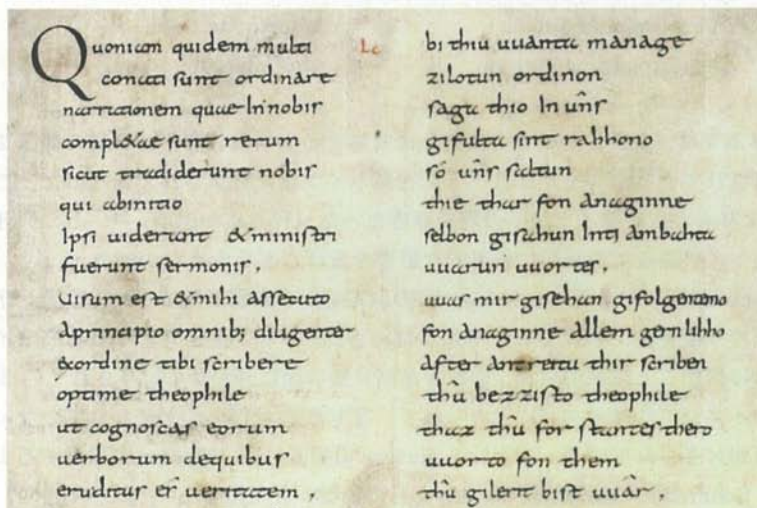 Quoniam quidem multi
conati sunt ordinare
narrationem quae In nobis
compl&ae sunt rerum
sicut tradiderunt nobis
qui abinitio
Ipsi uiderunt &ministri
fuerunt sermonis,
Uisum est &mihi assecuto
aprincipio omnib; diligenter
&ordine tibi scribere
optime theophile
ut cognoscas eorum
uerborum dequibus
eruditus es ueritatem,
Lc
bi thiu uuanta manage
zilotun ordinon
saga thio In uns
gifulta sint rahhono
so uns saltun
thie thar fon anaginne
selbon gisahun Inti ambahta
uuarun uuortes,
uuas mir gisehan gifolgentemo
fon anaginne allem gernlihho
after antreitu thir scriben
thu bezzisto theophile
thaz thu for stantes thero
uuorto fon them
thu gilerit bist uuar,